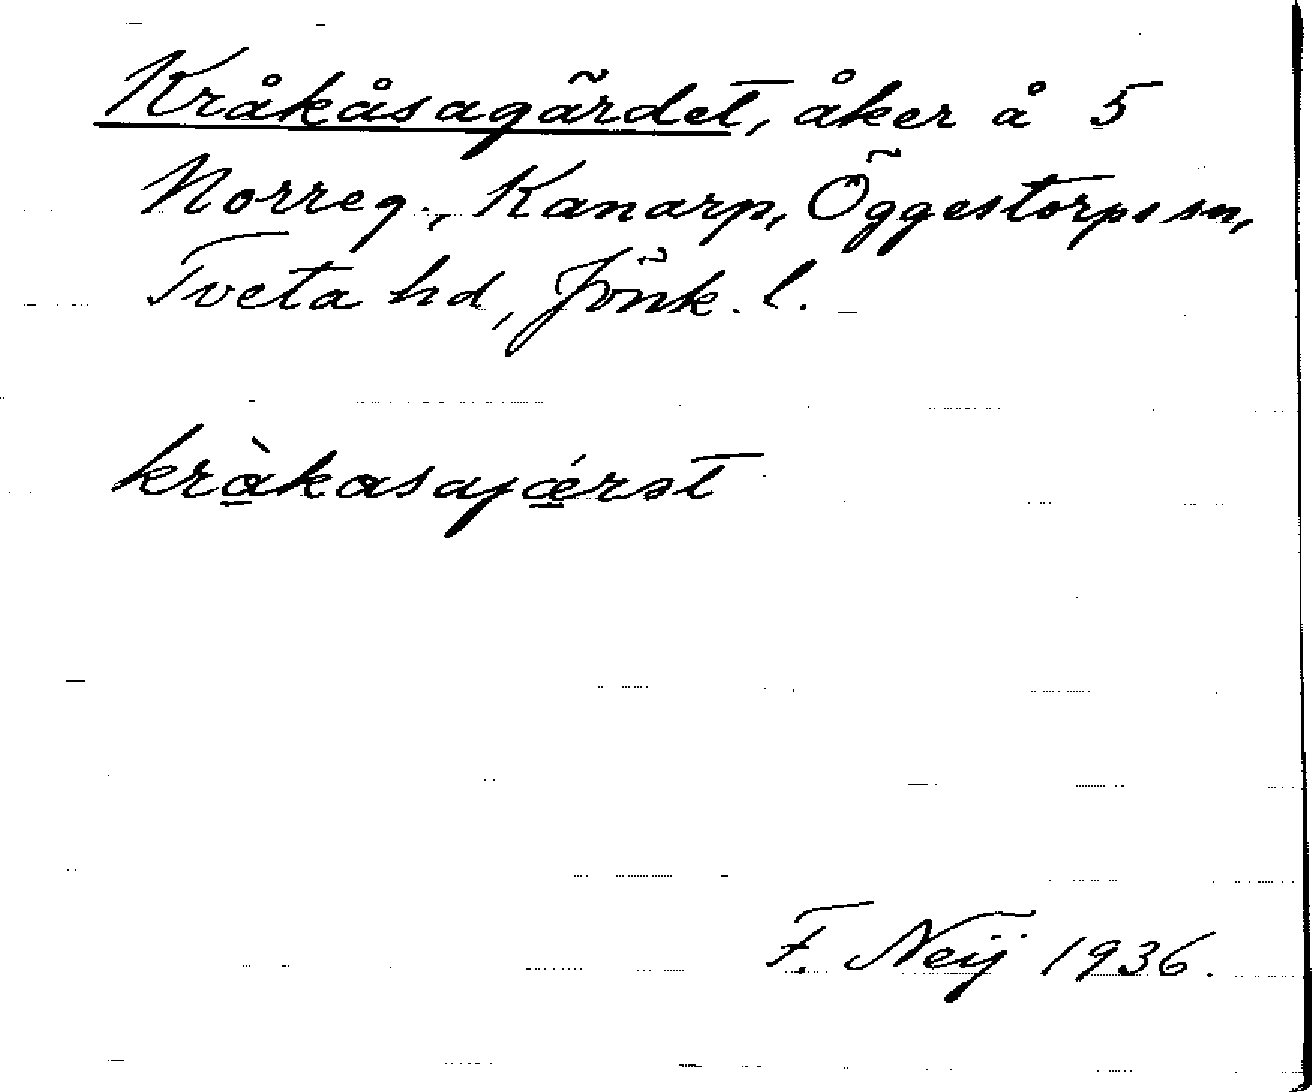 Kråkåsagärdet, åker å 5
Norreg., Kanarp, Öggestorps sn,
Tveta hd, Jönk. l.
kràkasajǽrət
F. Neij 1936.